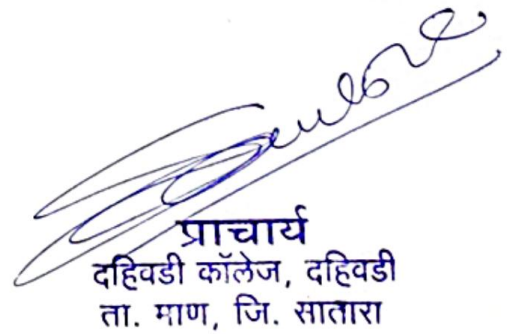 प्राचार्य
दहिवडी कॉलेज, दहिवडी
ता. माण, जि. सातारा